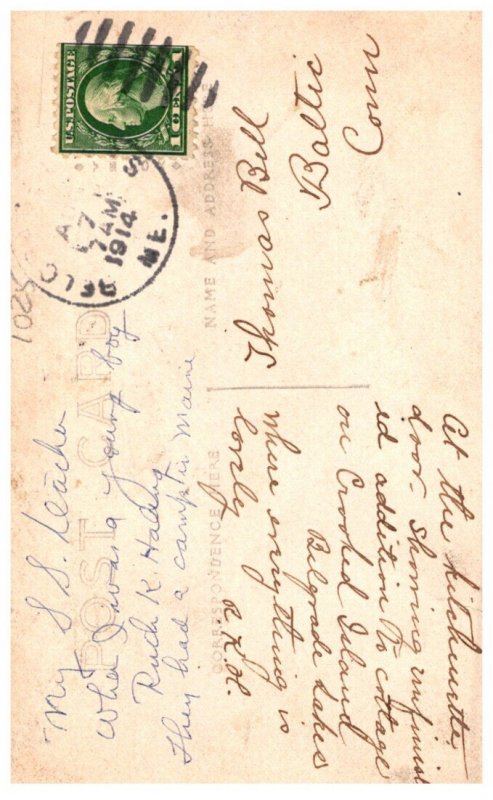 My S S. teacher
when I was a young boy
Ruth K.
They had a camp in Maine
POST CARD
1025
U.S. POSTAGE
1 CENT 1
7
7 AM
1914
ME.
CORRESPONDENCE HERE
NAME AND ADDRESS HERE
At the kitchenette
door- Showing unfinish
ed addition to cottage
on Crooked Island
Belgrade Lakes
where everything is
lovely
R. K. H.
Thomas Bill
Baltic
Conn